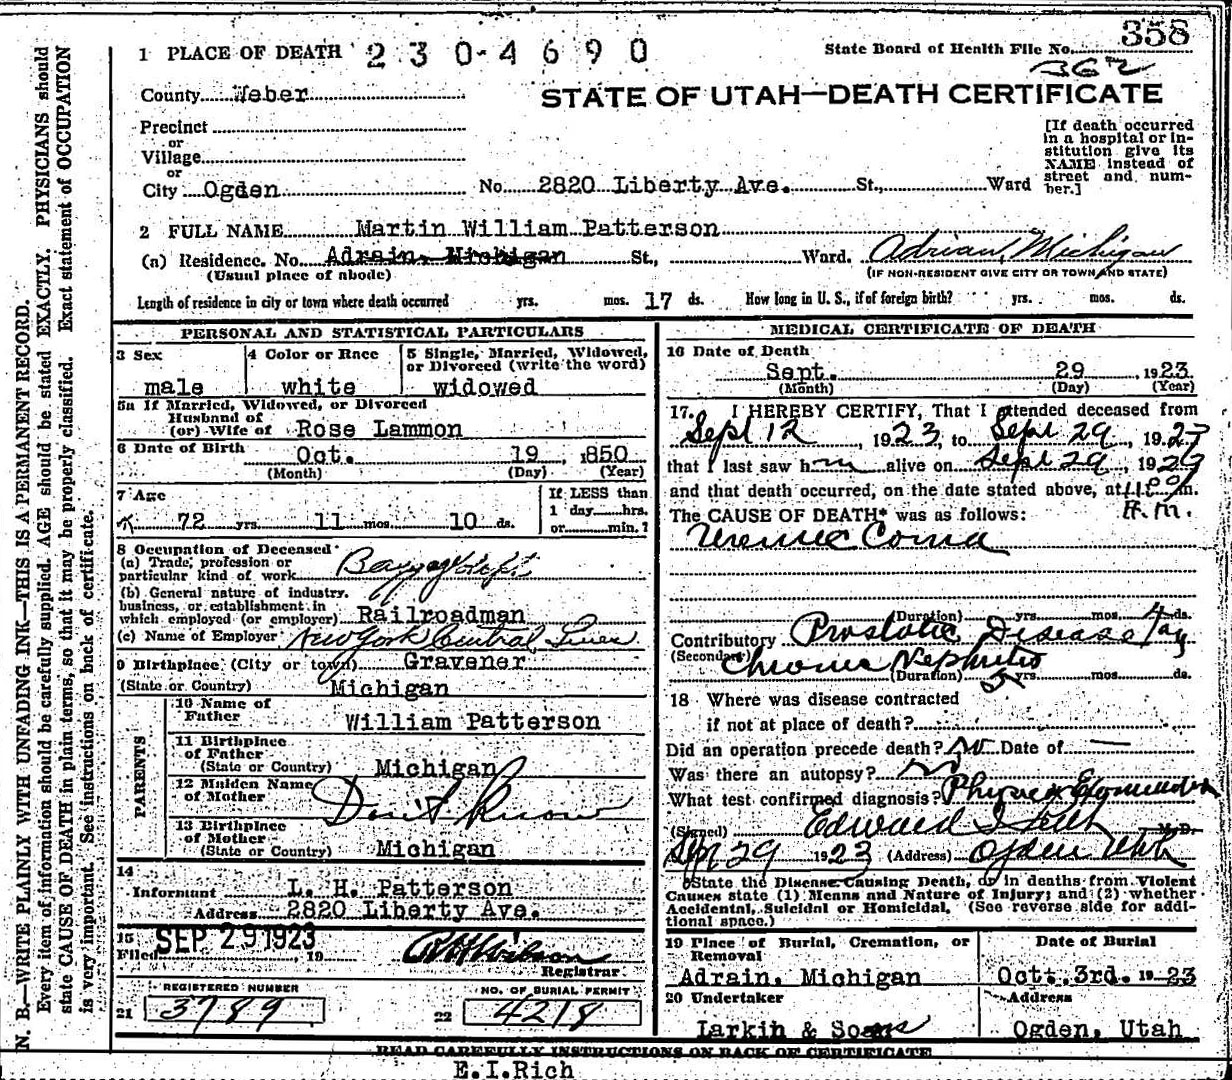 358
State Board of Health File No.
362
1 PLACE OF DEATH 230-4690
STATE OF UTAH—DEATH CERTIFICATE
County Weber
Precinct
or
Village
or
City Ogden No. 2820 Liberty Ave. St., Ward
[If death occurred
in a hospital or in-
stitution give its
NAME instead of
street and num-
ber.]
2 FULL NAME Martin William Patterson
(a) Residence. No. Adrain, Michigan St., Ward. Adrian, Michigan
(Usual place of abode) (IF NON-RESIDENT GIVE CITY OR TOWN AND STATE)
Length of residence in city or town where death occurred yrs. mos. 17 ds. How long in U. S., if of foreign birth? yrs. mos. ds.
PERSONAL AND STATISTICAL PARTICULARS
3 Sex
male
4 Color or Race
white
5 Single, Married, Widowed,
or Divorced (write the word)
widowed
5a If Married, Widowed, or Divorced
Husband of
(or) Wife of Rose Lammon
6 Date of Birth Oct. 19, 1850
(Month) (Day) (Year)
7 Age
72 yrs. 11 mos. 10 ds.
If LESS than
1 day hrs.
or min.?
8 Occupation of Deceased
(a) Trade, profession or
particular kind of work
(b) General nature of industry,
business, or establishment in
which employed (or employer) Railroadman
(c) Name of Employer New York Central Lines
9 Birthplace (City or town) Gravener
(State or Country) Michigan
PARENTS
10 Name of
Father William Patterson
11 Birthplace
of Father
(State or Country) Michigan
12 Maiden Name
of Mother Don't Know
13 Birthplace
of Mother
(State or Country) Michigan
14
Informant L. H. Patterson
Address 2820 Liberty Ave.
15
Filed SEP 29 1923, 19
R H Wilson
Registrar.
REGISTERED NUMBER
21 3789
NO. OF BURIAL PERMIT
22 4218
MEDICAL CERTIFICATE OF DEATH
16 Date of Death
Sept. 29 1923
(Month) (Day) (Year)
17. I HEREBY CERTIFY, That I attended deceased from
Sept 12, 1923, to Sept 29, 1923
that I last saw him alive on Sept 29, 1923
and that death occurred, on the date stated above, at m.
A.m.
The CAUSE OF DEATH* was as follows:
Uremic Coma
(Duration) yrs. mos. 4 ds.
Contributory Prostatic Disease
(Secondary) Chronic Nephritis
(Duration) 5 yrs. mos. ds.
18 Where was disease contracted
if not at place of death?
Did an operation precede death? No Date of —
Was there an autopsy? No
What test confirmed diagnosis?
(Signed) Edward I M.D.
Sept 29 1923 (Address) Ogden Utah
*State the Disease Causing Death, or in deaths from Violent
Causes state (1) Means and Nature of Injury; and (2) whether
Accidental, Suicidal or Homicidal. (See reverse side for addi-
tional space.)
19 Place of Burial, Cremation, or
Removal
Adrain, Michigan
Date of Burial
Oct. 3rd. 1923
20 Undertaker
Larkin & Sons
Address
Ogden, Utah
READ CAREFULLY INSTRUCTIONS ON BACK OF CERTIFICATE
E.I.Rich
N. B.—WRITE PLAINLY WITH UNFADING INK—THIS IS A PERMANENT RECORD.
Every item of information should be carefully supplied. AGE should be stated EXACTLY. PHYSICIANS should
state CAUSE OF DEATH in plain terms, so that it may be properly classified. Exact statement of OCCUPATION
is very important. See instructions on back of certificate.